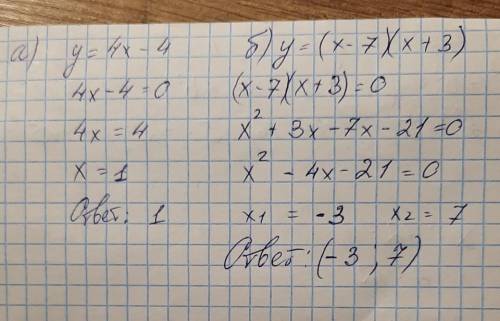 а) y = 4x - 4
4x - 4 = 0
4x = 4
x = 1
Ответ: 1
б) y = (x - 7)(x + 3)
(x - 7)(x + 3) = 0
x² + 3x - 7x - 21 = 0
x² - 4x - 21 = 0
x₁ = -3 x₂ = 7
Ответ: (-3 ; 7)